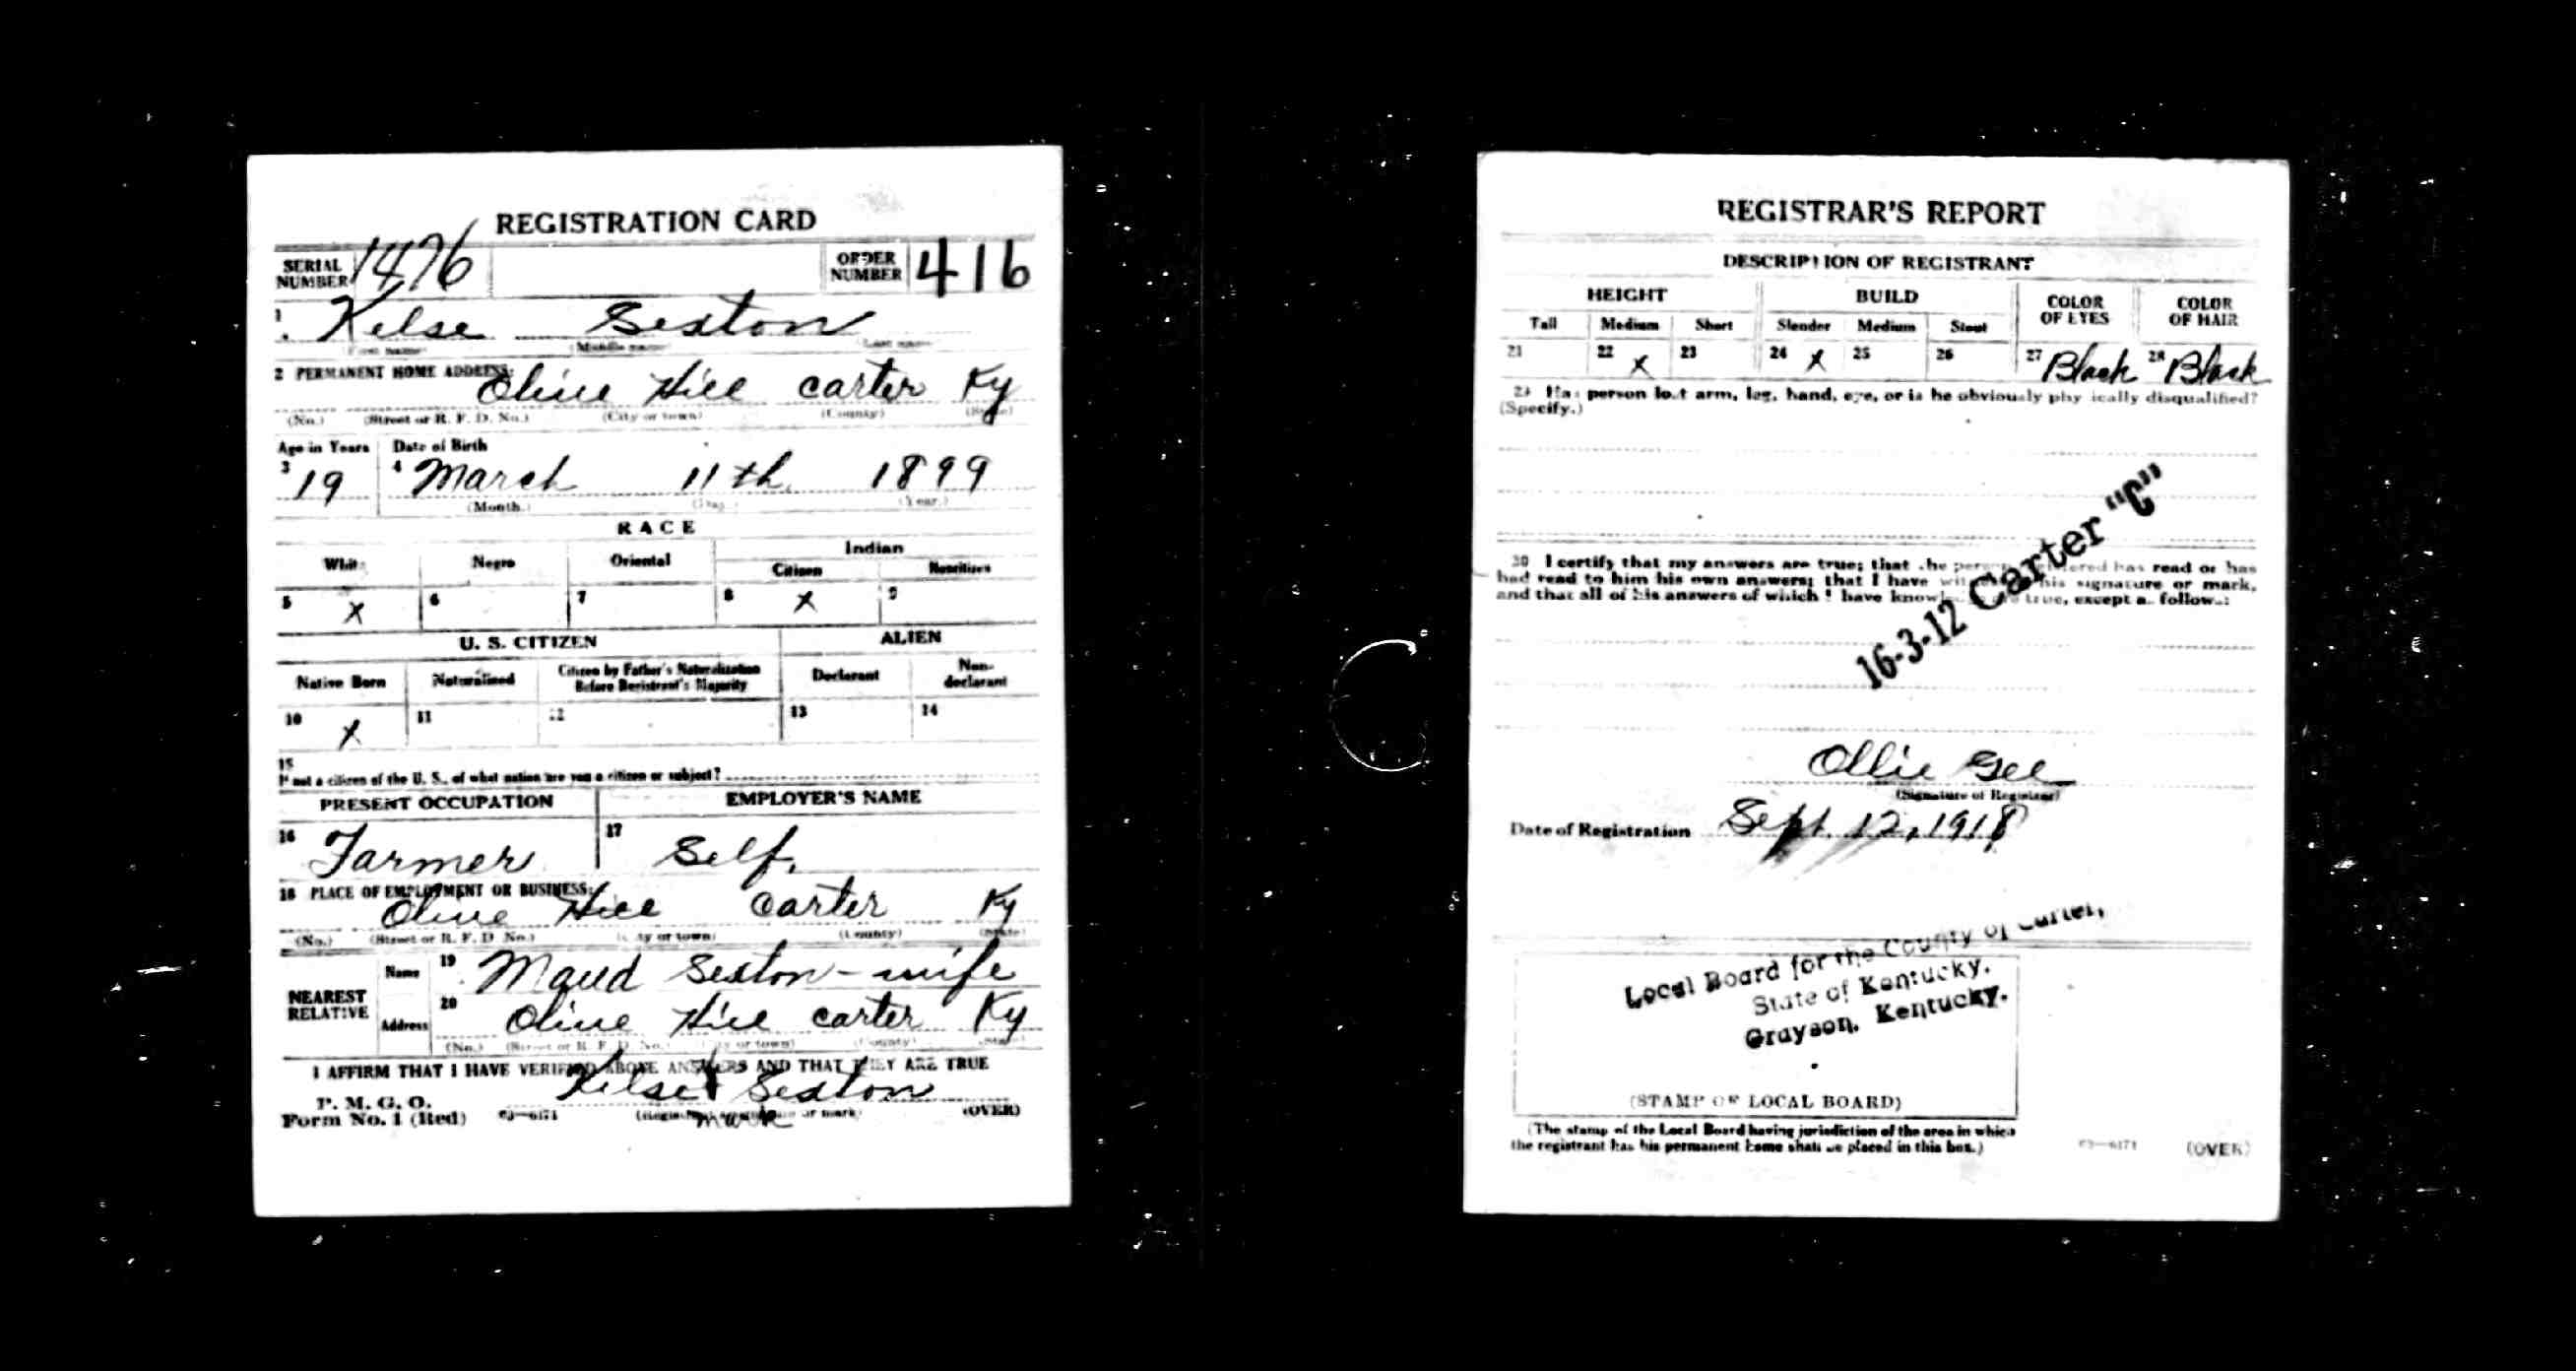 REGISTRATION CARD
SERIAL NUMBER 1476 ORDER NUMBER 416
1 Kelse Sexton
First name Middle name Last name
2 PERMANENT HOME ADDRESS:
Olive Hill Carter Ky
(No.) (Street or R. F. D. No.) (City or town) (County) (State)
Age in Years Date of Birth
3 19 4 March 11th 1899
(Month.) (Day.) (Year.)
RACE
White Negro Oriental Indian
Citizen Noncitizen
5 X 6 7 8 X 9
U. S. CITIZEN ALIEN
Native Born Naturalized Citizen by Father's Naturalization Before Registrant's Majority Declarant Non-declarant
10 X 11 12 13 14
15
If not a citizen of the U. S., of what nation are you a citizen or subject?
PRESENT OCCUPATION EMPLOYER'S NAME
16 Farmer 17 Self.
18 PLACE OF EMPLOYMENT OR BUSINESS:
Olive Hill Carter Ky
(No.) (Street or R. F. D. No.) (City or town) (County) (State)
NEAREST RELATIVE
Name 19 Maud Sexton - wife
Address 20 Olive Hill Carter Ky
(No.) (Street or R. F. D. No.) (City or town) (County) (State)
I AFFIRM THAT I HAVE VERIFIED ABOVE ANSWERS AND THAT THEY ARE TRUE
Kelse X Sexton
P. M. G. O.
Form No. 1 (Red) 03—6171 (Registrant's signature or mark) (OVER)
mark
REGISTRAR'S REPORT
DESCRIPTION OF REGISTRANT
HEIGHT BUILD COLOR OF EYES COLOR OF HAIR
Tall Medium Short Slender Medium Stout
21 22 X 23 24 X 25 26 27 Black 28 Black
29 Has person lost arm, leg, hand, eye, or is he obviously physically disqualified?
(Specify.)
16-3-12 Carter "C"
30 I certify that my answers are true; that the person registered has read or has
had read to him his own answers; that I have witnessed his signature or mark,
and that all of his answers of which I have knowledge are true, except as follows:
Ollie Gee
(Signature of Registrar)
Date of Registration Sept. 12, 1918
Local Board for the County of Carter,
State of Kentucky.
Grayson, Kentucky.
(STAMP OF LOCAL BOARD)
(The stamp of the Local Board having jurisdiction of the area in which
the registrant has his permanent home shall be placed in this box.)
03—6171 (OVER)